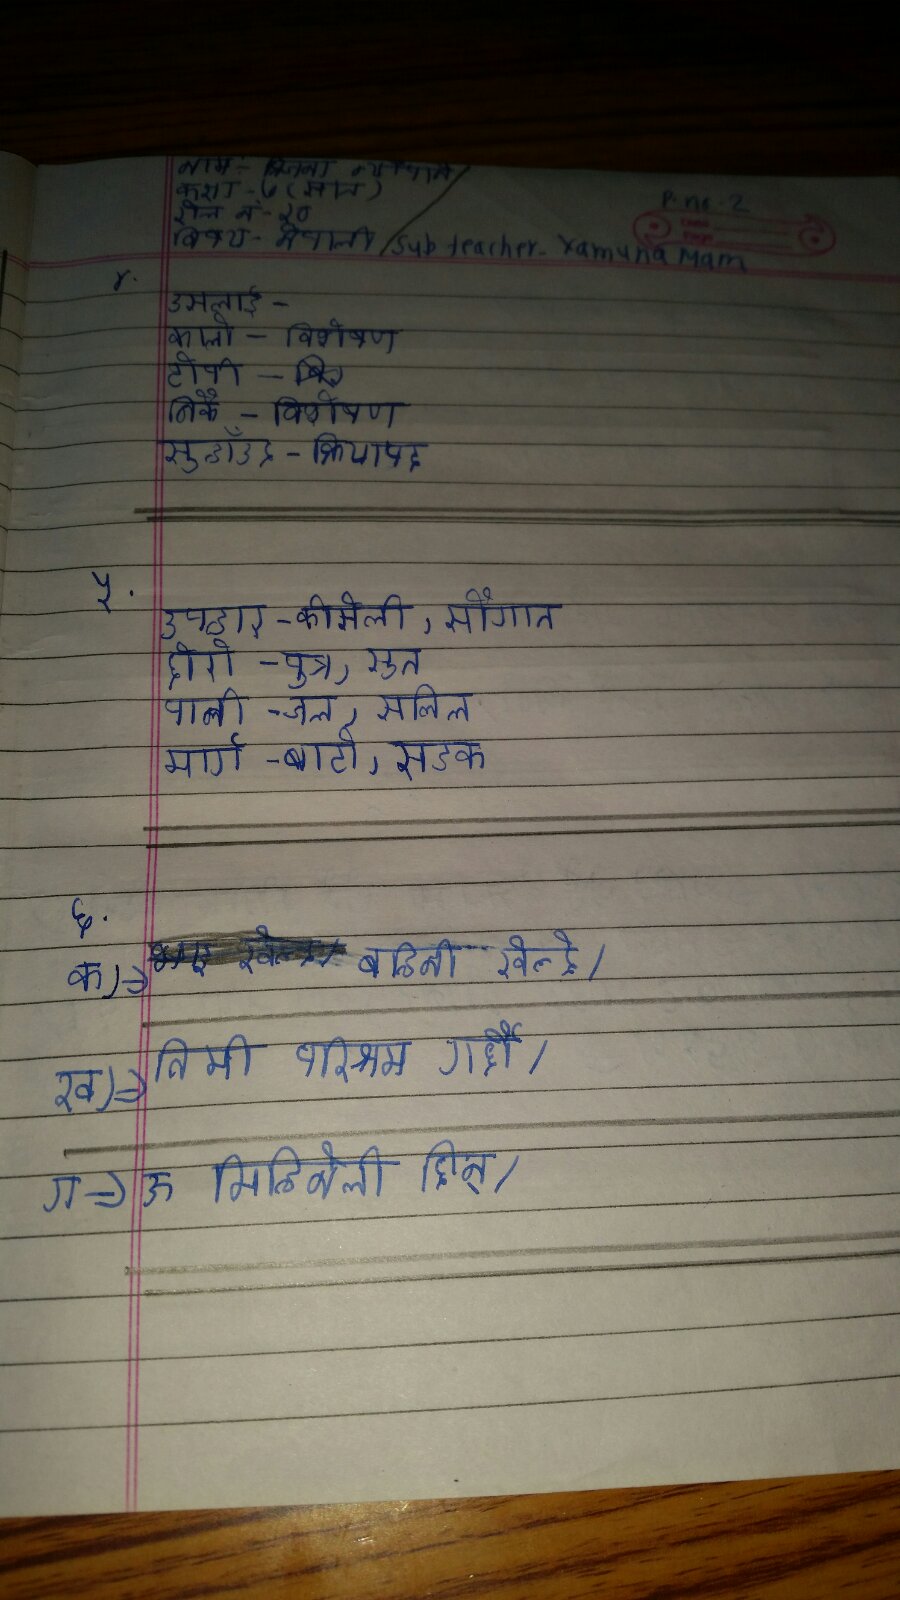 नाम:-
कक्षा - ७ (सात)
रोल नं - २०
विषय - नेपाली / Sub teacher - Yamuna Mam
P. no. 2
४.
उसलाई -
कालो - विशेषण
टोपी -
निकै - विशेषण
सुहाँउछ - क्रियापद
५.
उपहार - कोसेली, सौगात
छोरो - पुत्र, सुत
पानी - जल, सलिल
मार्ग - बाटो, सडक
६.
क) ⇒ बहिनी खेल्छे।
ख) ⇒ तिमी परिश्रम गर्छौ।
ग ⇒ ऊ मिहिनेती छिन्।